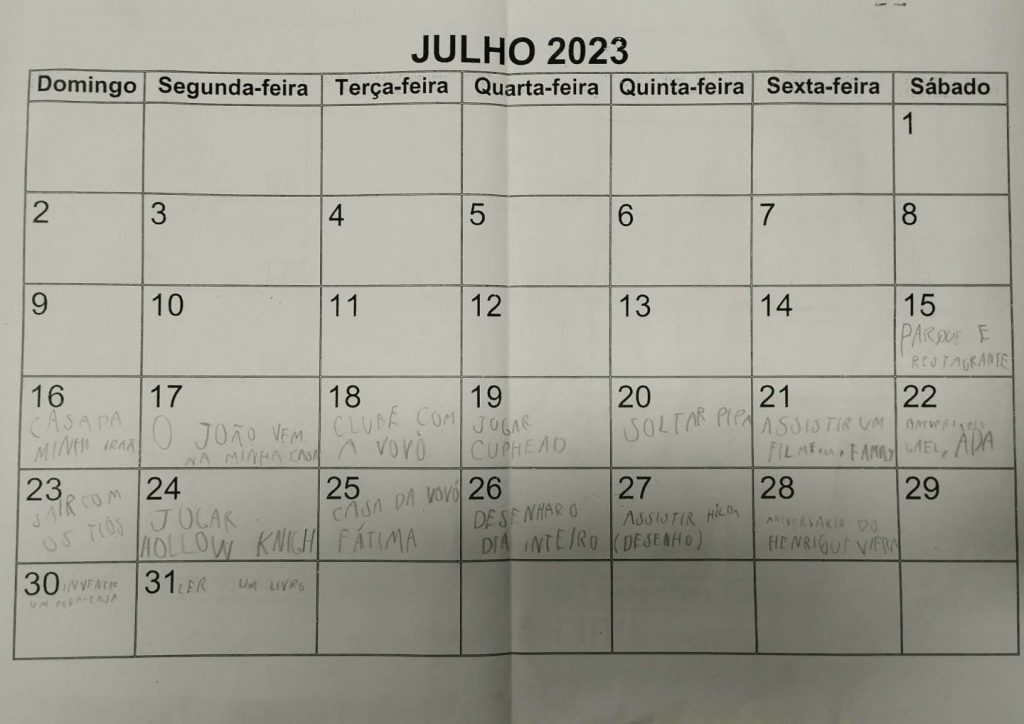 JULHO 2023
Domingo Segunda-feira Terça-feira Quarta-feira Quinta-feira Sexta-feira Sábado
1
2 3 4 5 6 7 8
9 10 11 12 13 14 15
PARQUE E
16 17 18 19 20 21 22
CASA DA O JOÃO VEM CLUBE COM JOGAR SOLTAR PIPA ASSISTIR UM
MINHA IRMÃ NA MINHA CASA A VOVÒ CUPHEAD FILME LAEL E ADA
23 24 25 26 27 28 29
SAIR COM JOGAR CASA DA VOVÓ DESENHAR O ASSISTIR HILDA ANIVERSÁRIO DO
OS TIOS HOLLOW KNIGH FÁTIMA DIA INTEIRO (DESENHO) HENRIQUE
30 INVENTAR 31 LER UM LIVRO
UM